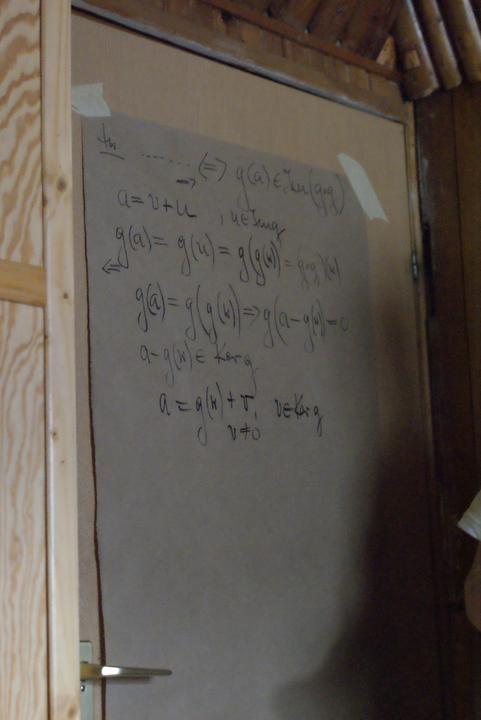 tw. ........ ⇔ g(a) ∈ Im(g∘g)
a = v + u , u ∈ Im g
g(a) = g(u) = g(g(w)) = g∘g(w)
⇐
g(a) = g(g(w)) ⇒ g(a - g(w)) = 0
a - g(w) ∈ Ker g
a = g(w) + v, v ∈ Ker g
v ≠ 0